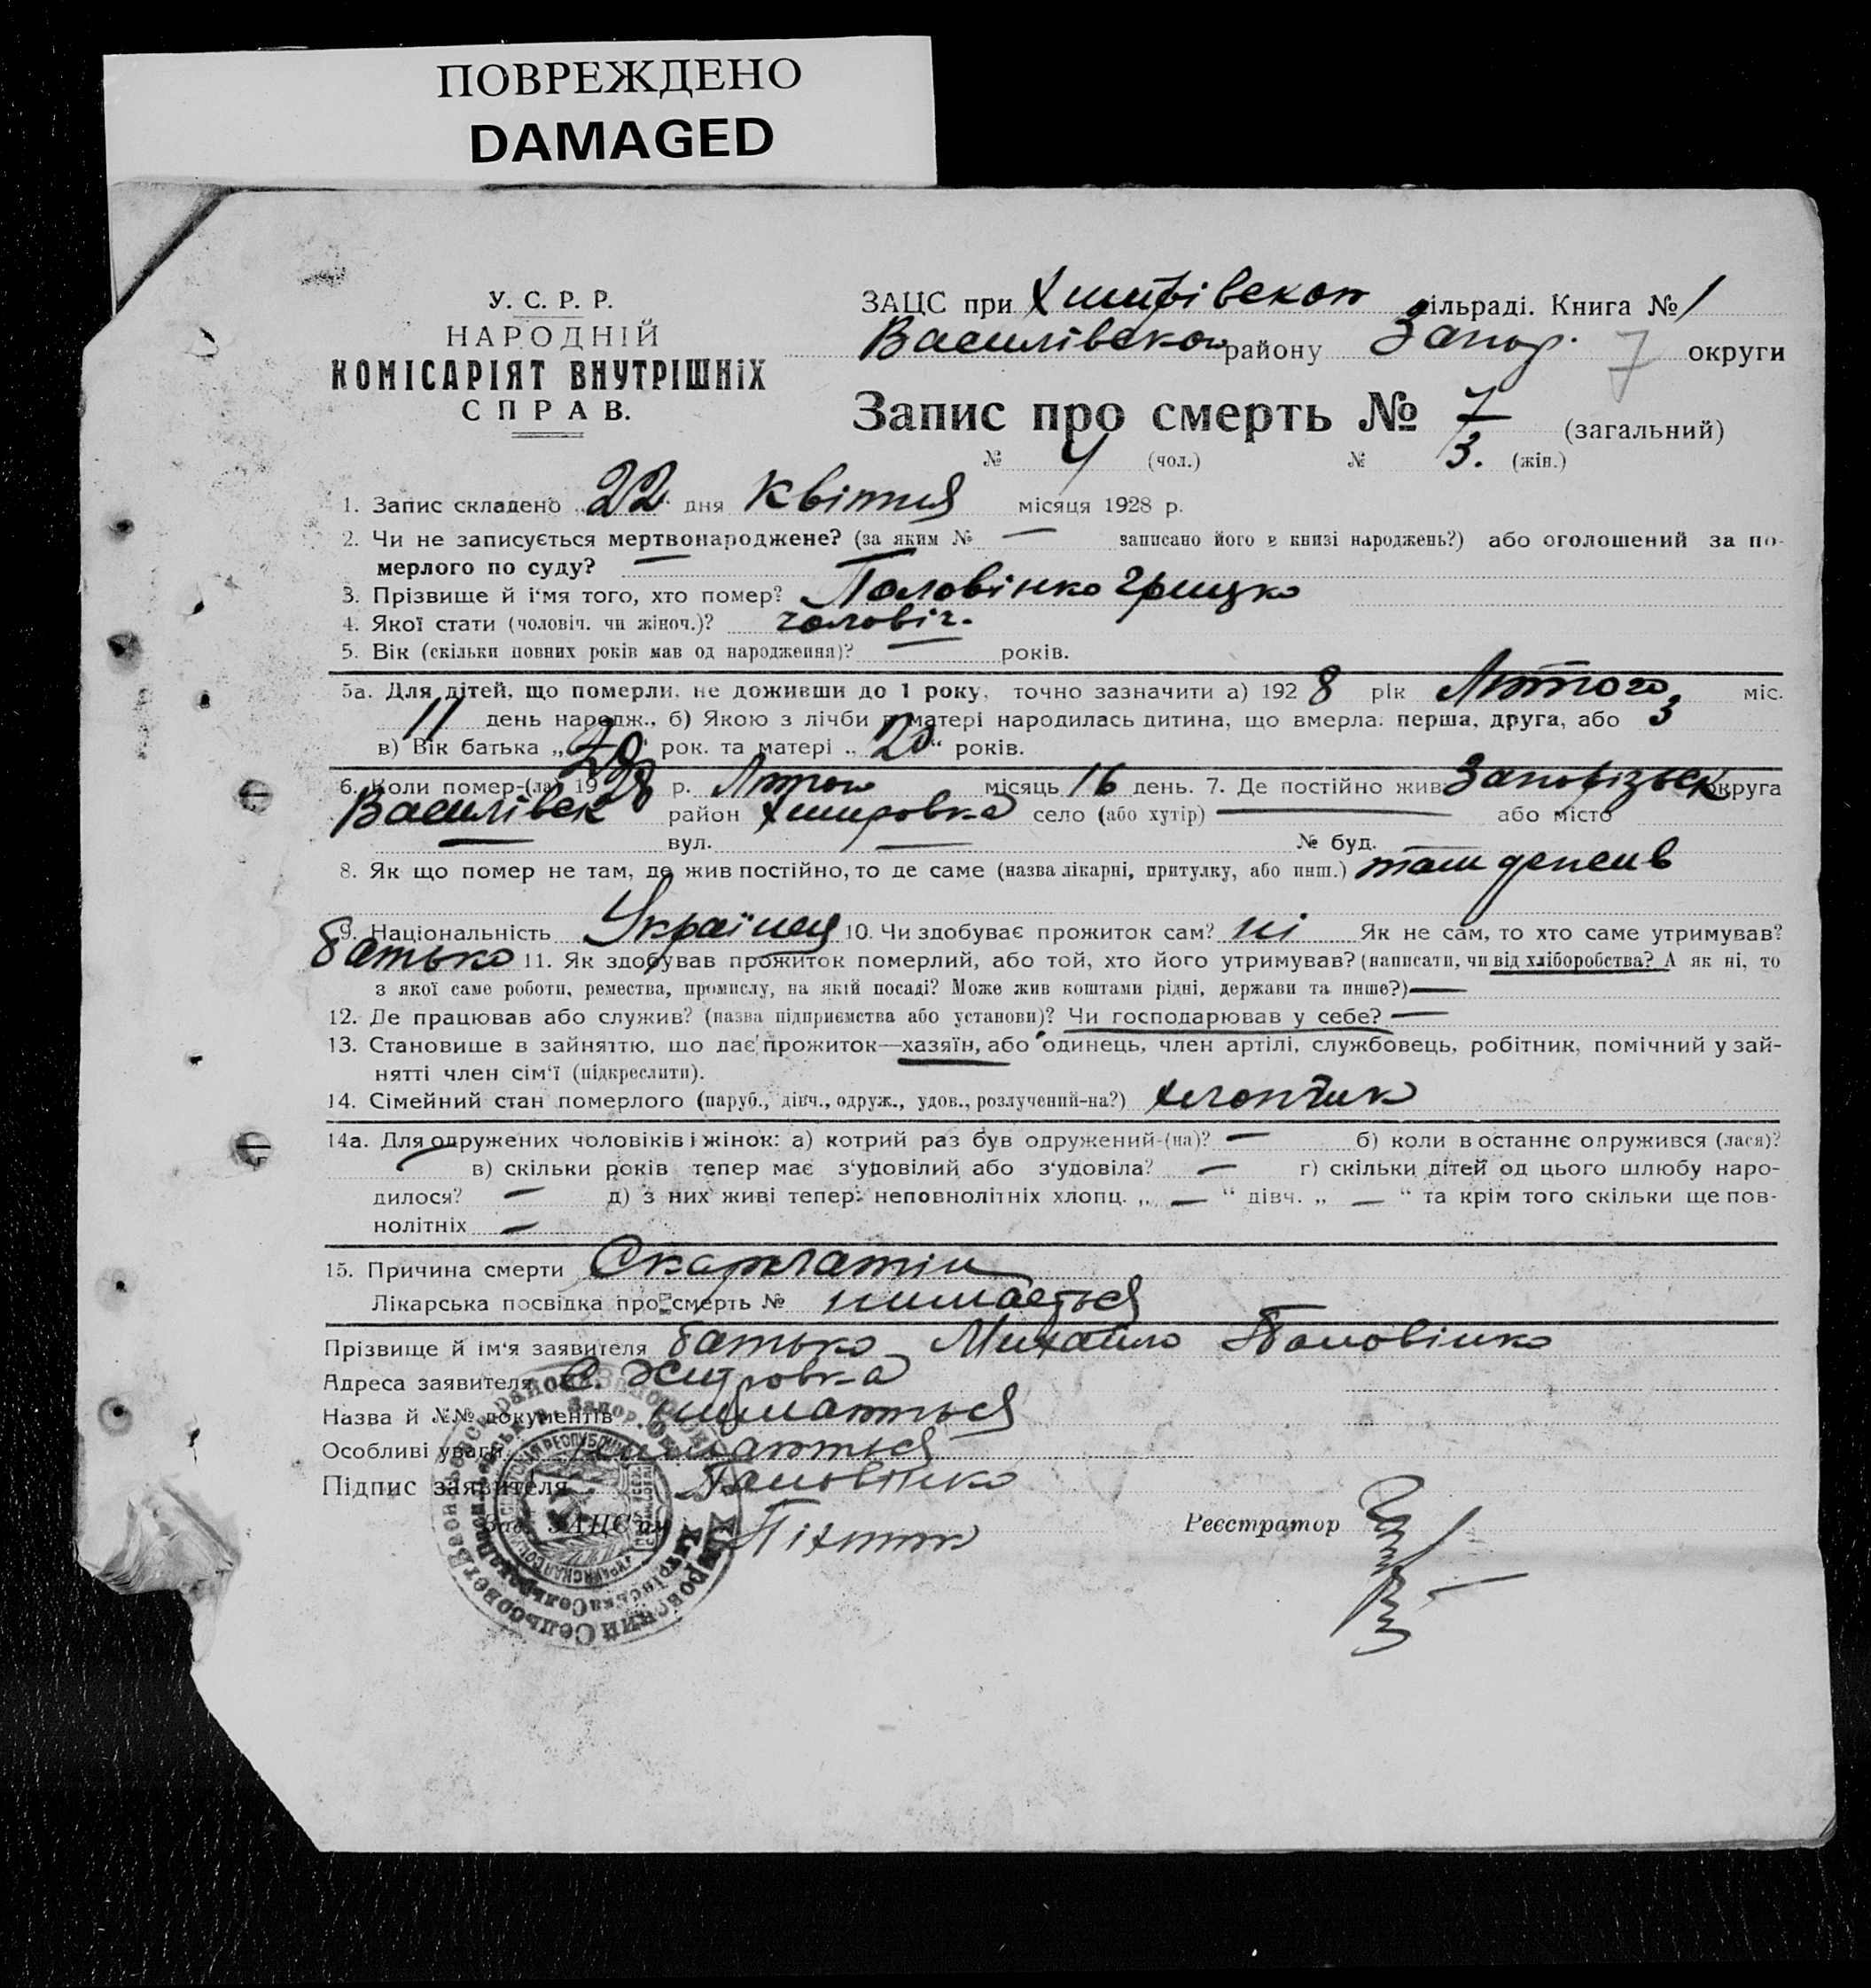 ПОВРЕЖДЕНО
DAMAGED
У. С. Р. Р.
НАРОДНІЙ
КОМІСАРІЯТ ВНУТРІШНІХ
СПРАВ.
ЗАЦС при сільраді. Книга № 1
Василівского району Запор. 7 округи
Запис про смерть № 7 (загальний)
№ 4 (чол.) № 3. (жін.)
1. Запис складено „22" дня Квітня місяця 1928 р.
2. Чи не записується мертвонароджене? (за яким № — записано його в книзі народжень?) або оголошений за по-
мерлого по суду? —
3. Прізвище й і'мя того, хто помер? Половінко Грицко
4. Якої стати (чоловіч. чи жіноч.)? чоловіч.
5. Вік (скільки повних років мав од народження)? — років.
5а. Для дітей, що померли, не доживши до 1 року, точно зазначити а) 1928 рік Лютого міс.
11 день народж., б) Якою з лічби в матері народилась дитина, що вмерла: перша, друга, або 3
в) Вік батька „ рок. та матері „20" років.
6. Коли помер-(ла) 1928 р. Лютого місяць 16 день. 7. Де постійно жив Запорізьск округа
Василівск район Хитровка село (або хутір) — або місто
— вул. — № буд.
8. Як що помер не там, де жив постійно, то де саме (назва лікарні, притулку, або инш.) там де жив
9. Національність Українец 10. Чи здобуває прожиток сам? ні Як не сам, то хто саме утримував?
батько 11. Як здобував прожиток померлий, або той, хто його утримував? (написати, чи від хліборобства? А як ні, то
з якої саме роботи, ремества, промислу, на якій посаді? Може жив коштами рідні, держави та инше?) —
12. Де працював або служив? (назва підприємства або установи)? Чи господарював у себе? —
13. Становище в зайняттю, що дає прожиток—хазяїн, або одинець, член артілі, службовець, робітник, помічний у зай-
нятті член сім'ї (підкреслити).
14. Сімейний стан померлого (паруб., дівч., одруж., удов., розлучений-на?) хлопчик
14а. Для одружених чоловіків і жінок: а) котрий раз був одружений-(на)? — б) коли в останнє одружився (лася)?
— в) скільки років тепер має з'удовілий або з'удовіла? — г) скільки дітей од цього шлюбу наро-
дилося? — д) з них живі тепер: неповнолітніх хлопц. „ — " дівч. „ — " та крім того скільки ще пов-
нолітніх —
15. Причина смерти Скарлатін
Лікарська посвідка про смерть № нимається
Прізвище й ім'я заявителя батько Михайло Половінко
Адреса заявителя С. Хитровка
Назва й №№ документів нимаються
Особливі уваги нимаються
Підпис заявителя Половінко
Зав. ЗАЦС'ом
Реєстратор